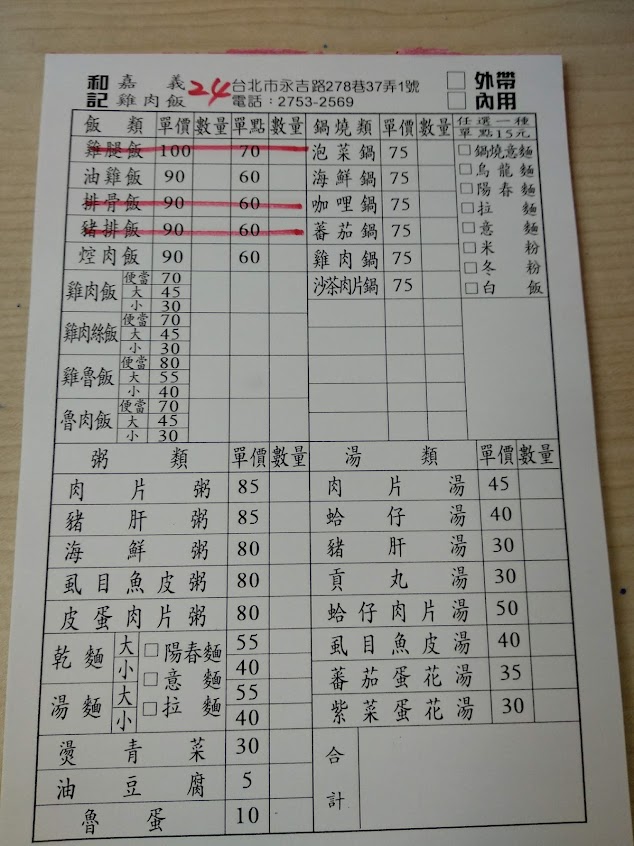 和記 嘉義雞肉飯 24 台北市永吉路278巷37弄1號 □外帶
電話：2753-2569 □內用
飯類 單價 數量 單點 數量 鍋燒類 單價 數量 任選一種
單點15元
雞腿飯 100 70 泡菜鍋 75 □鍋燒意麵
油雞飯 90 60 海鮮鍋 75 □烏龍麵
排骨飯 90 60 咖哩鍋 75 □陽春麵
豬排飯 90 60 蕃茄鍋 75 □拉麵
焢肉飯 90 60 雞肉鍋 75 □意麵
沙茶肉片鍋 75 □米粉
□冬粉
□白飯
雞肉飯 便當 70
大 45
小 30
雞肉絲飯 便當 70
大 45
小 30
雞魯飯 便當 80
大 55
小 40
魯肉飯 便當 70
大 45
小 30
粥類 單價 數量 湯類 單價 數量
肉片粥 85 肉片湯 45
豬肝粥 85 蛤仔湯 40
海鮮粥 80 豬肝湯 30
虱目魚皮粥 80 貢丸湯 30
皮蛋肉片粥 80 蛤仔肉片湯 50
乾麵 大 □陽春麵 55 虱目魚皮湯 40
小 □意麵 40 蕃茄蛋花湯 35
湯麵 大 □拉麵 55 紫菜蛋花湯 30
小 40
燙青菜 30 合計
油豆腐 5
魯蛋 10